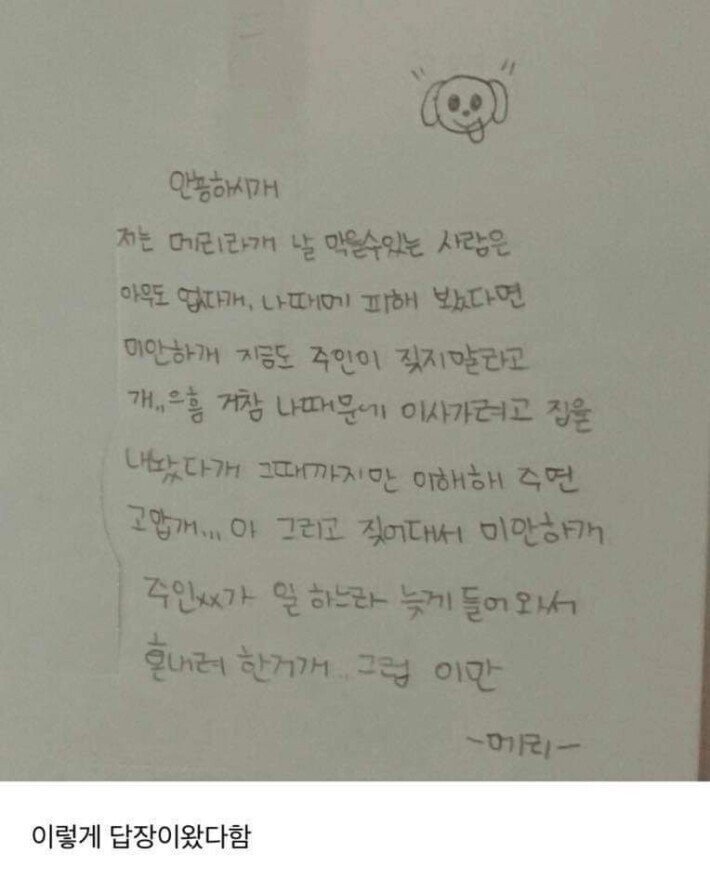 안용하시개
저는 메리라개 날 막을수있는 사람은
아무도 업다개, 나때메 피해 보았다면
미안하개 지금도 주인이 짖지말라고
개,,으흠 거참 나때문에 이사가려고 집을
내놨다개 그때까지만 이해해 주면
고맙개... 아 그리고 짖어대서 미안하개
주인xx가 일 하느라 늦게 들어와서
혼내려 한거개.. 그럼 이만
-메리-
이렇게 답장이왔다함